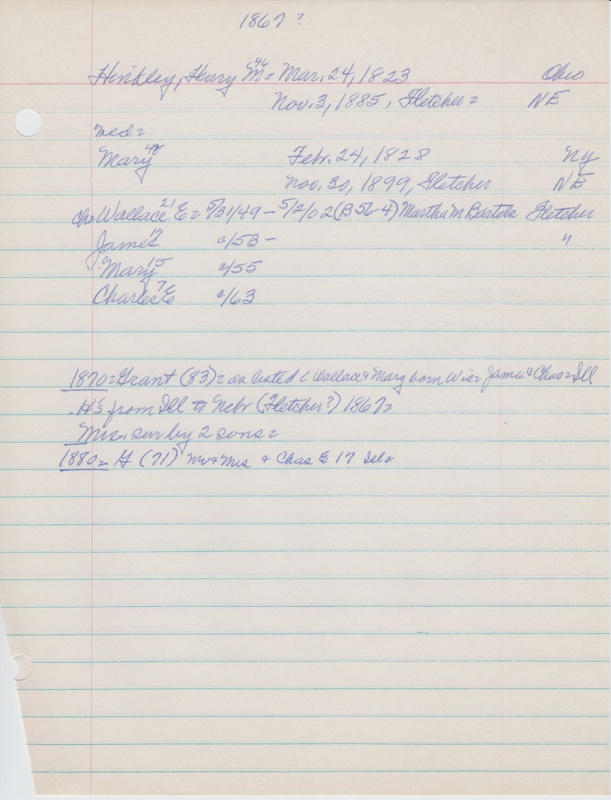 1867?
Hinkley, Henry M 46 = Mar. 24, 1823 Ohio
Nov. 3, 1885, Fletcher = NE
med =
Mary 42 Febr. 24, 1828 NY
Nov. 30, 1899, Fletcher NE
ch = Wallace 21 E = 5/31/49 - 5/2/02 (B56-4) Martha M Bartels Fletcher
James 17 c/53 - "
Mary 15 c/55
Charles 7 E c/63
1870 = Grant (83) = as listed c Wallace & Mary born Wis = James & Chas = Ill
H's from Ill to Nebr (Fletcher?) 1867 =
Mrs. sur by 2 sons =
1880 = H (71) Mr & Mrs & Chas E 17 Ill =